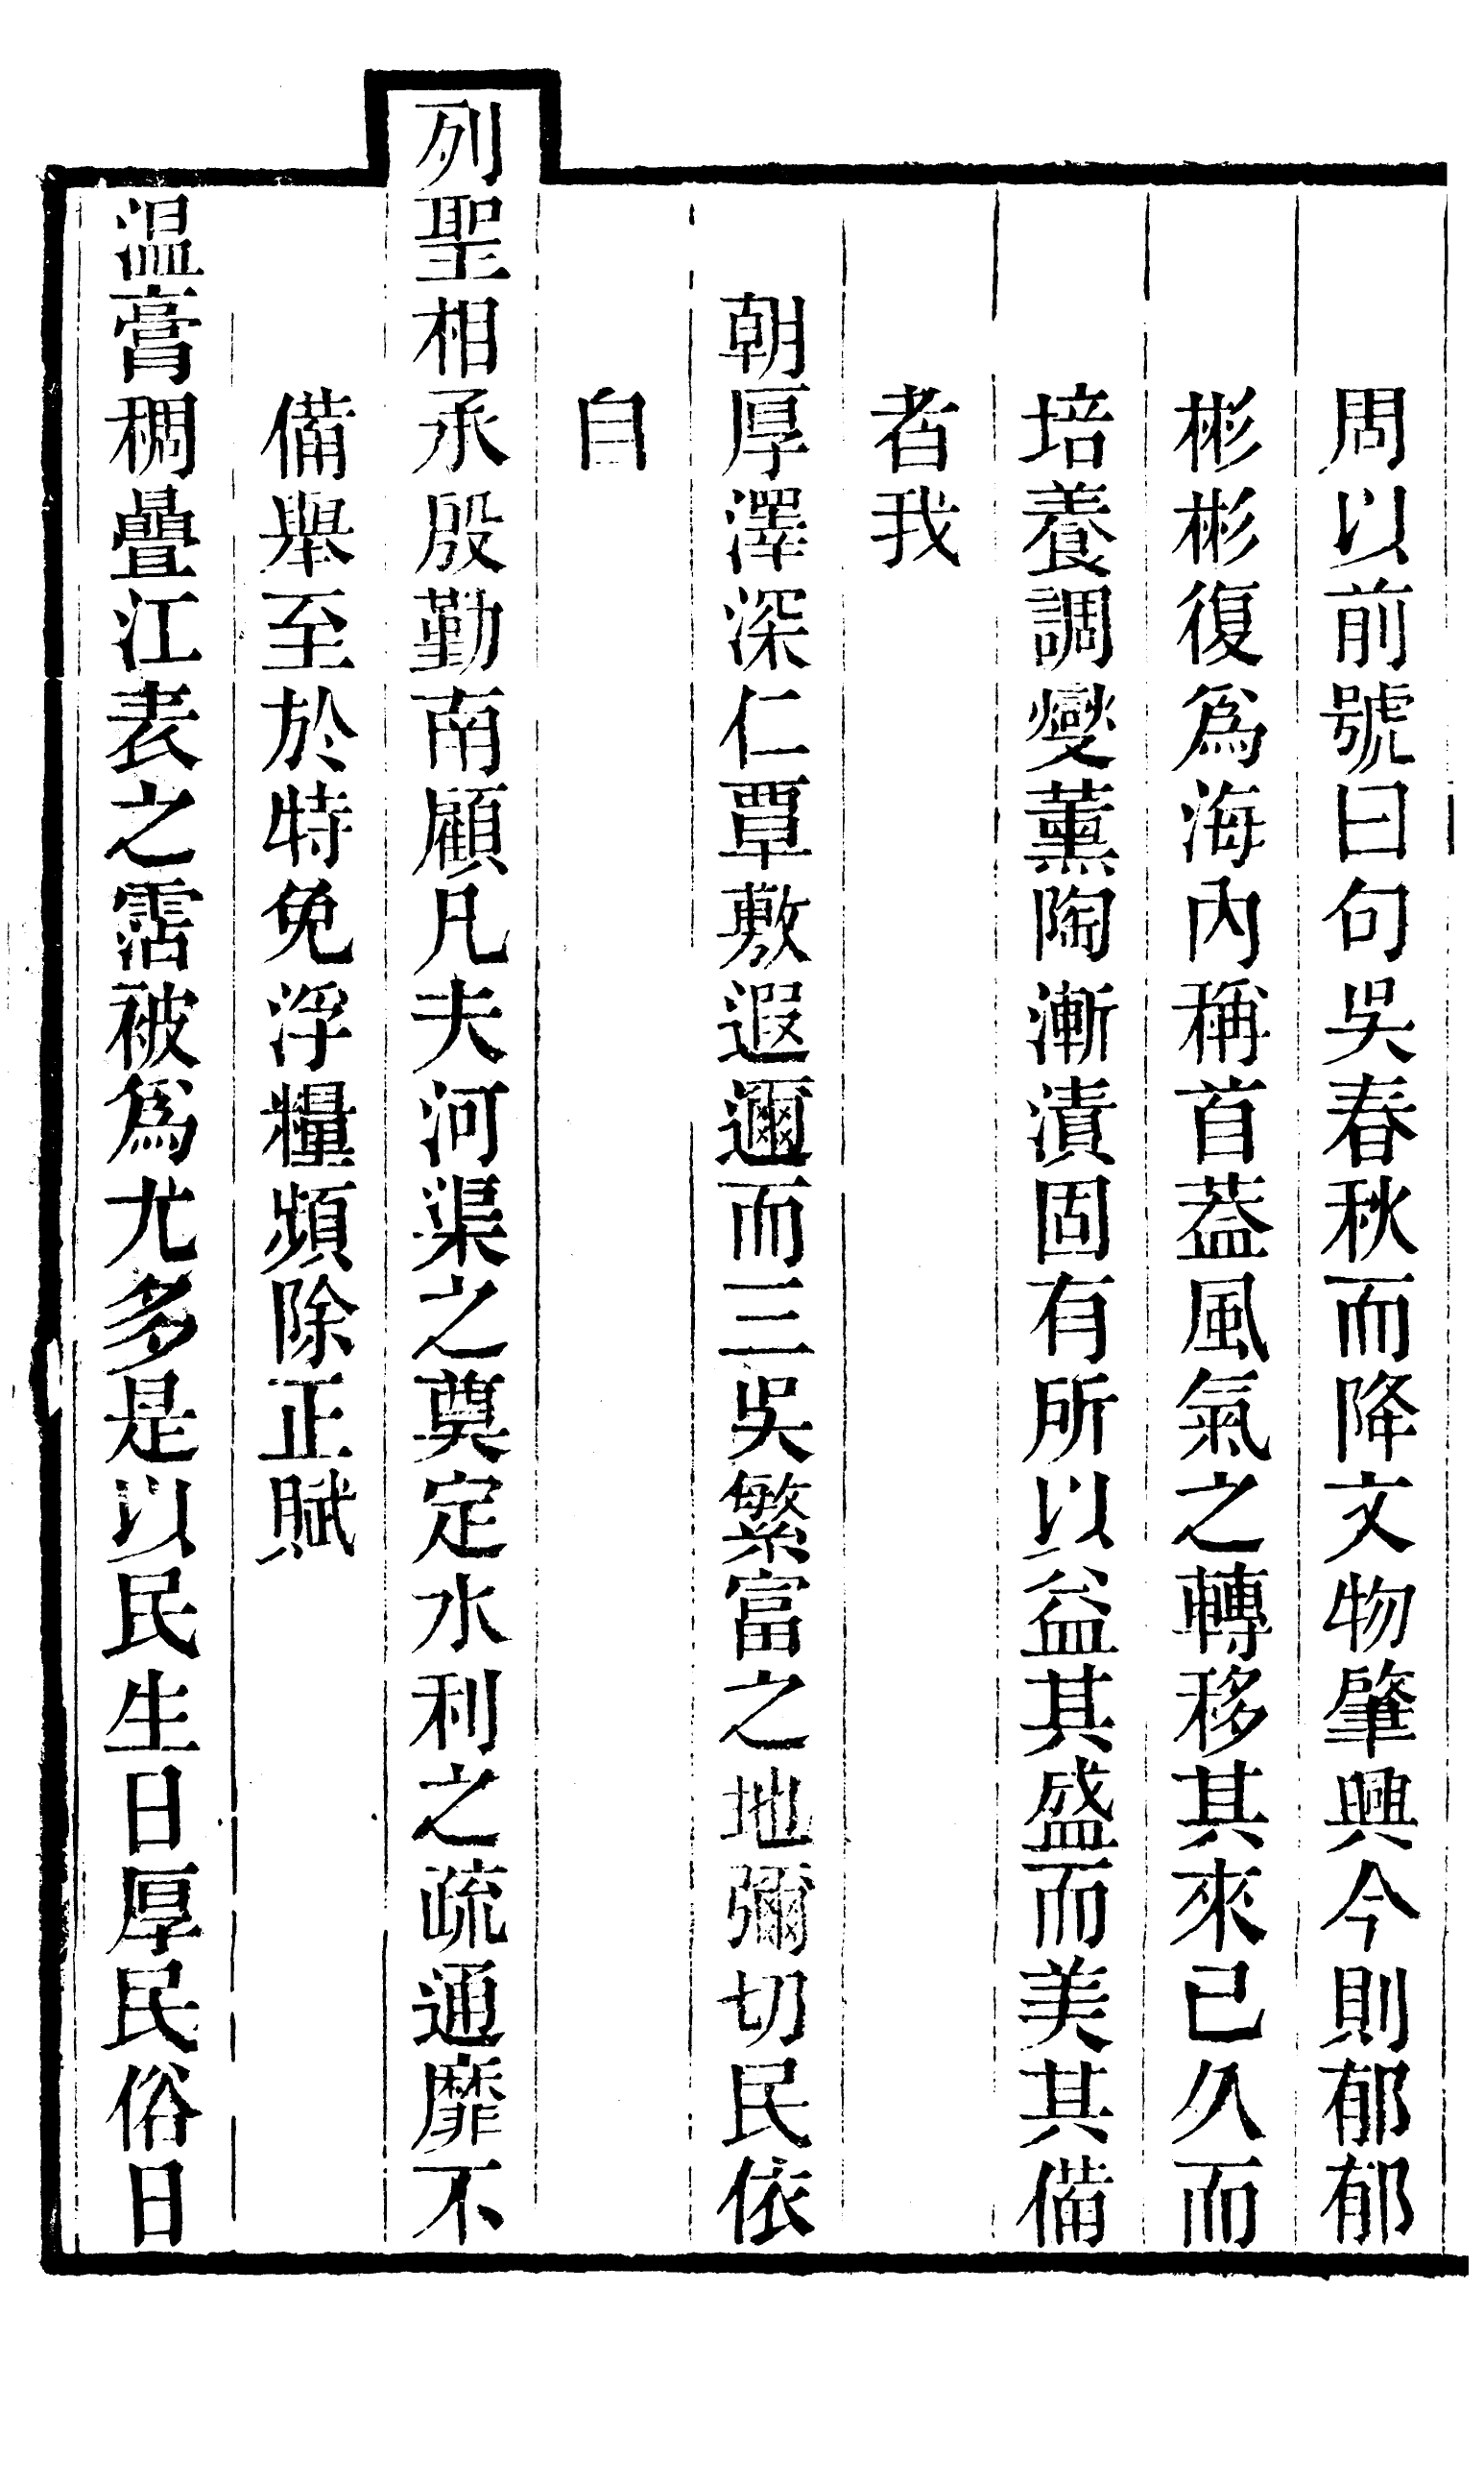 周以前號曰句吳春秋而降文物肇興今則郁郁
彬彬復爲海內稱首葢風氣之轉移其來已久而
培養調燮薰陶漸漬固有所以益其盛而美其備
者我
朝厚澤深仁覃敷遐邇而三吳繁富之地彌切民依
自
列聖相承殷勤南顧凡夫河渠之奠定水利之疏通靡不
備舉至於特免浮糧頻除正賦
温膏稠疊江表之霑被爲尤多是以民生日厚民俗日